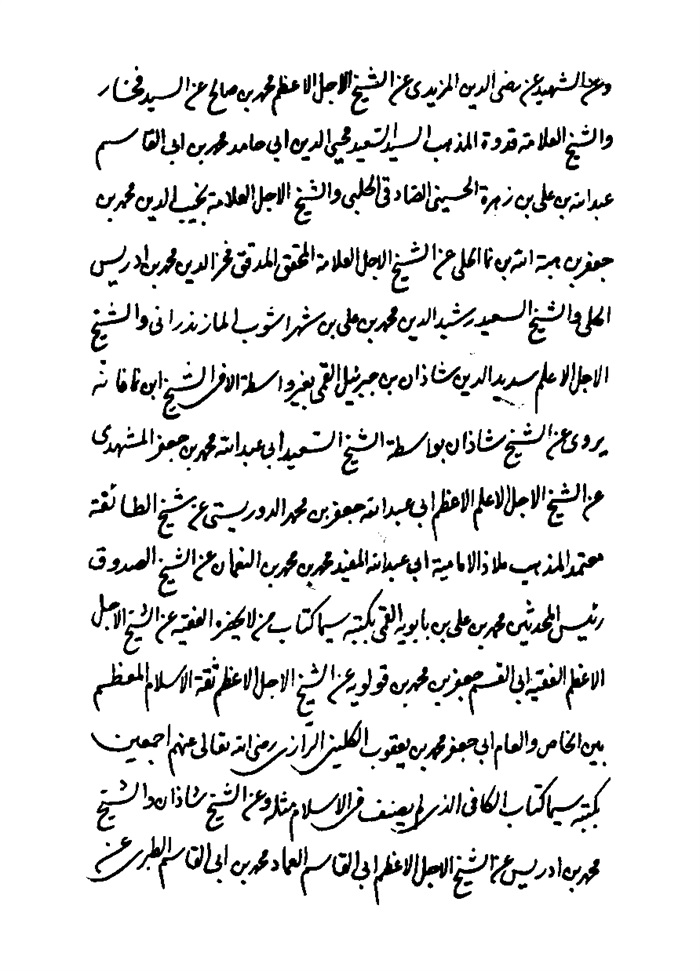 وعن الشهيد عن رضى الدين المزيدى عن الشيخ الاجل الاعظم محمد بن صالح عن السيد فخار
والشيخ العلامة قدوة المذهب السيد السعيد محيى الدين ابى حامد محمد بن ابى القاسم
عبدالله بن على بن زهرة الحسينى الصادقى الحلبى والشيخ الاجل العلامة نجيب الدين محمد بن
جعفر بن هبة الله بن نما الحلى عن الشيخ الاجل العلامة المحقق المدقق فخر الدين محمد بن ادريس
الحلى والشيخ السعيد رشيد الدين محمد بن على بن شهراشوب المازندرانى والشيخ
الاجل الاعلم سديد الدين شاذان بن جبرئيل القمى بغير واسطة الا فى الشيخ ابن نما فانه
يروى عن الشيخ شاذان بواسطة الشيخ السعيد ابى عبدالله محمد بن جعفر المشهدى
عن الشيخ الاجل الاعلم الاعظم ابى عبدالله جعفر بن محمد الدوريستى عن شيخ الطائفة
معتمد المذهب ملاذ الامامية ابى عبدالله المفيد محمد بن محمد بن النعمان عن الشيخ الصدوق
رئيس المحدثين محمد بن على بن بابويه القمى بكتبه سيما كتاب من لا يحضره الفقيه عن الشيخ الاجل
الاعظم الفقيه ابى القسم جعفر بن محمد بن قولويه عن الشيخ الاجل الاعظم ثقة الاسلام المعظم
بين الخاص والعام ابى جعفر محمد بن يعقوب الكلينى الرازى رضى الله تعالى عنهم اجمعين
بكتبه سيما كتاب الكافى الذى لم يصنف فى الاسلام مثله وعن الشيخ شاذان والشيخ
محمد بن ادريس عن الشيخ الاجل الاعظم ابى القاسم العماد محمد بن ابى القاسم الطبرى عن